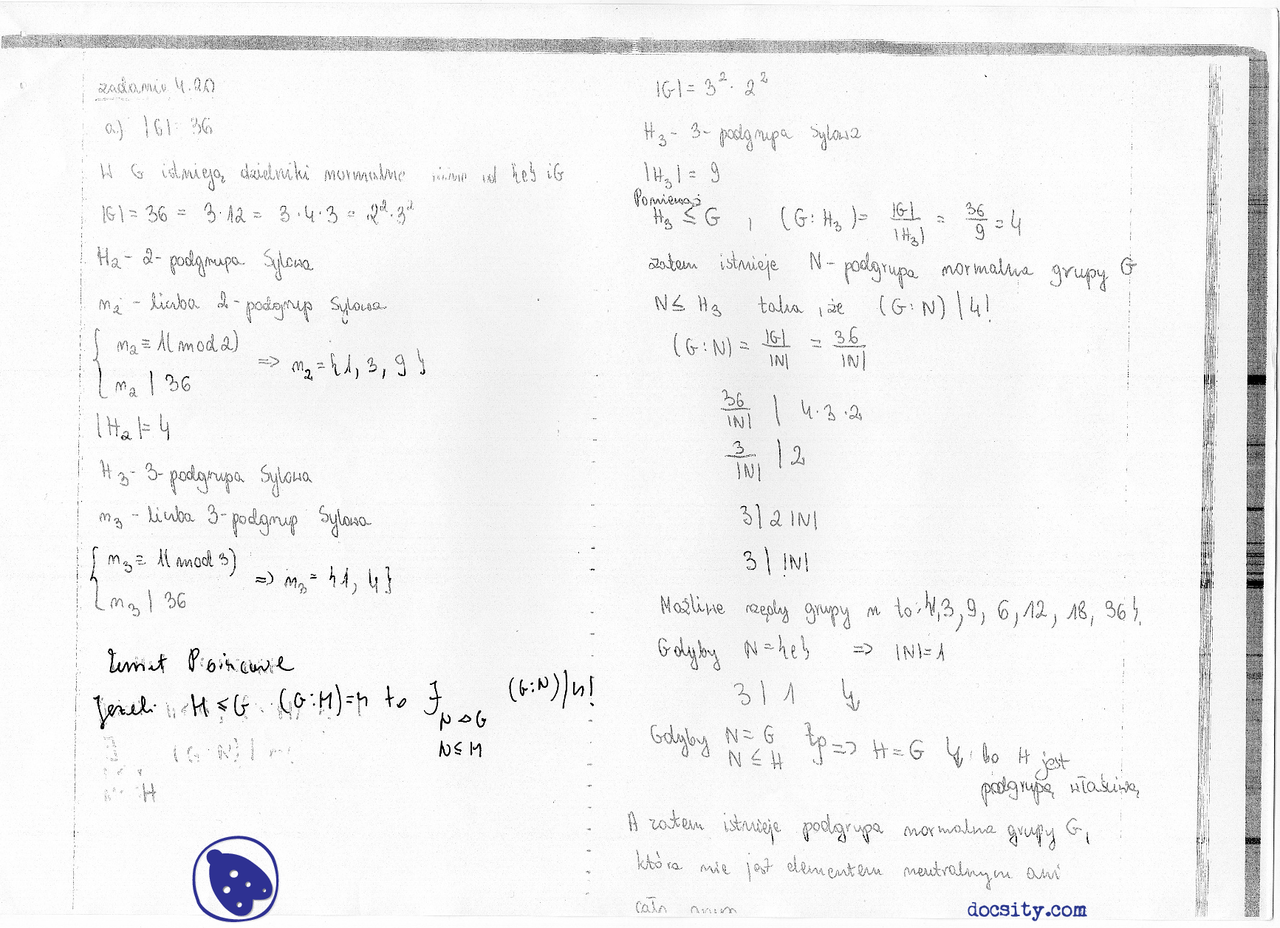 zadanie 4.20
a) |G| = 36
W G istnieją dzielniki normalne różne od {e} i G
|G| = 36 = 3·12 = 3·4·3 = 2²·3²
H₂ - 2-podgrupa Sylowa
n₂ - liczba 2-podgrup Sylowa
{ n₂ ≡ 1(mod 2)
n₂ | 36 => n₂ = {1, 3, 9}
|H₂| = 4
H₃ - 3-podgrupa Sylowa
n₃ - liczba 3-podgrup Sylowa
{ n₃ ≡ 1(mod 3)
n₃ | 36 => n₃ = {1, 4}
Poincare
Jeżeli H ≤ G (G:H)=n to ∃ (G:N)|n!
N ⊲ G
N ≤ H
|G| = 3²·2²
H₃ - 3-podgrupa Sylowa
|H₃| = 9
Ponieważ
H₃ ≤ G , (G:H₃) = |G|/|H₃| = 36/9 = 4
zatem istnieje N - podgrupa normalna grupy G
N ≤ H₃ taka, że (G:N) | 4!
(G:N) = |G|/|N| = 36/|N|
36/|N| | 4·3·2
3/|N| | 2
3 | 2|N|
3 | |N|
Możliwe rzędy grupy n to: {1,3,9,6,12,18,36}.
Gdyby N={e} => |N|=1
3 | 1 ↯
Gdyby N = G
N ≤ H } => H = G ↯ bo H jest
podgrupą właściwą
A zatem istnieje podgrupa normalna grupy G,
która nie jest elementem neutralnym ani
całą
docsity.com